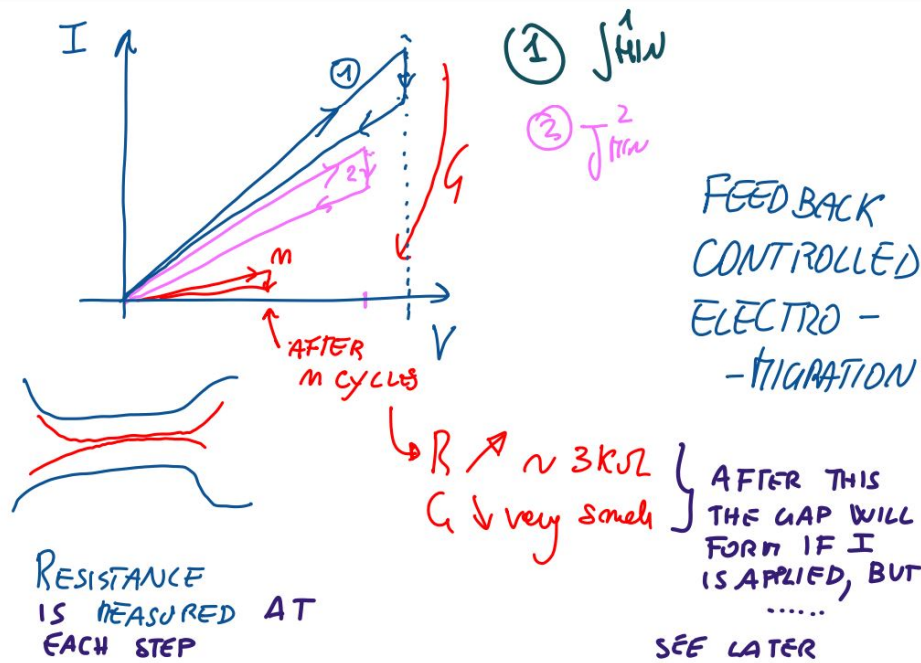 I
1
2
m
G
V
① J¹MIN
② J²MIN
FEEDBACK
CONTROLLED
ELECTRO -
- MIGRATION
AFTER
m CYCLES
R ↗ ~ 3KΩ
G ↓ very small
AFTER THIS
THE GAP WILL
FORM IF I
IS APPLIED, BUT
......
SEE LATER
RESISTANCE
IS MEASURED AT
EACH STEP